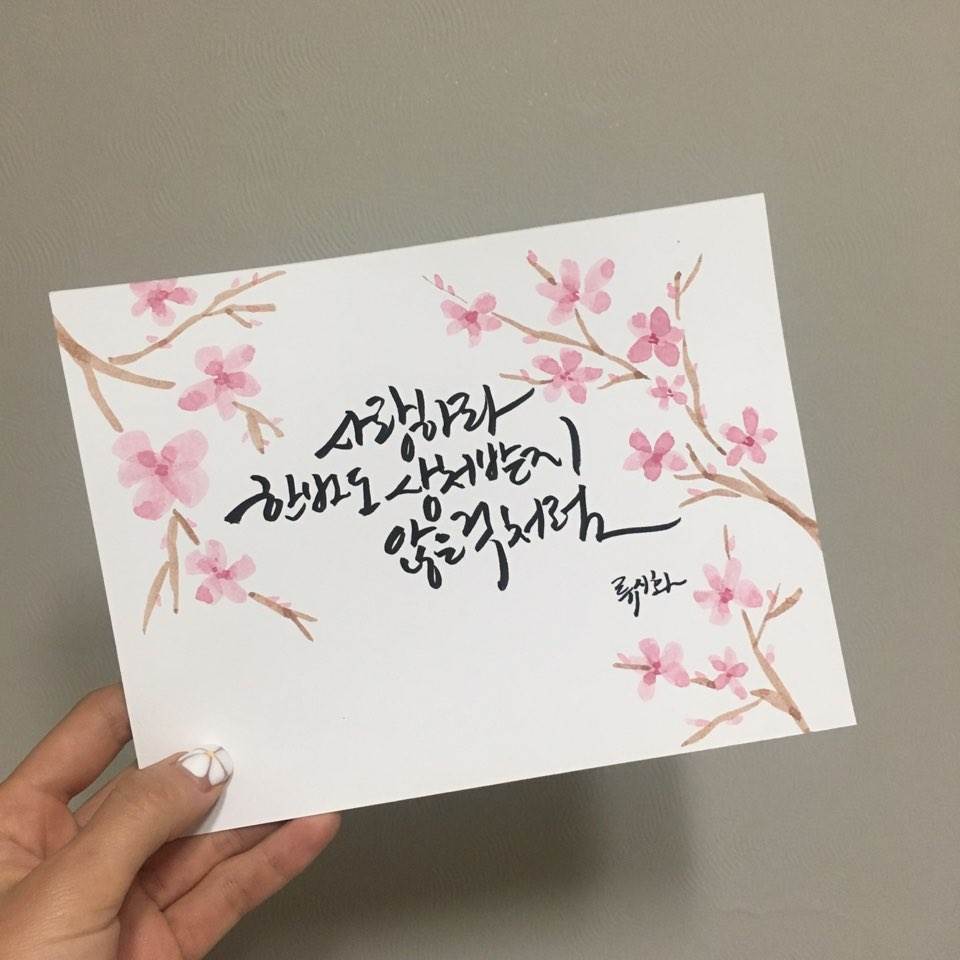 사랑하라
한번도 상처받지
않은것처럼
류시화